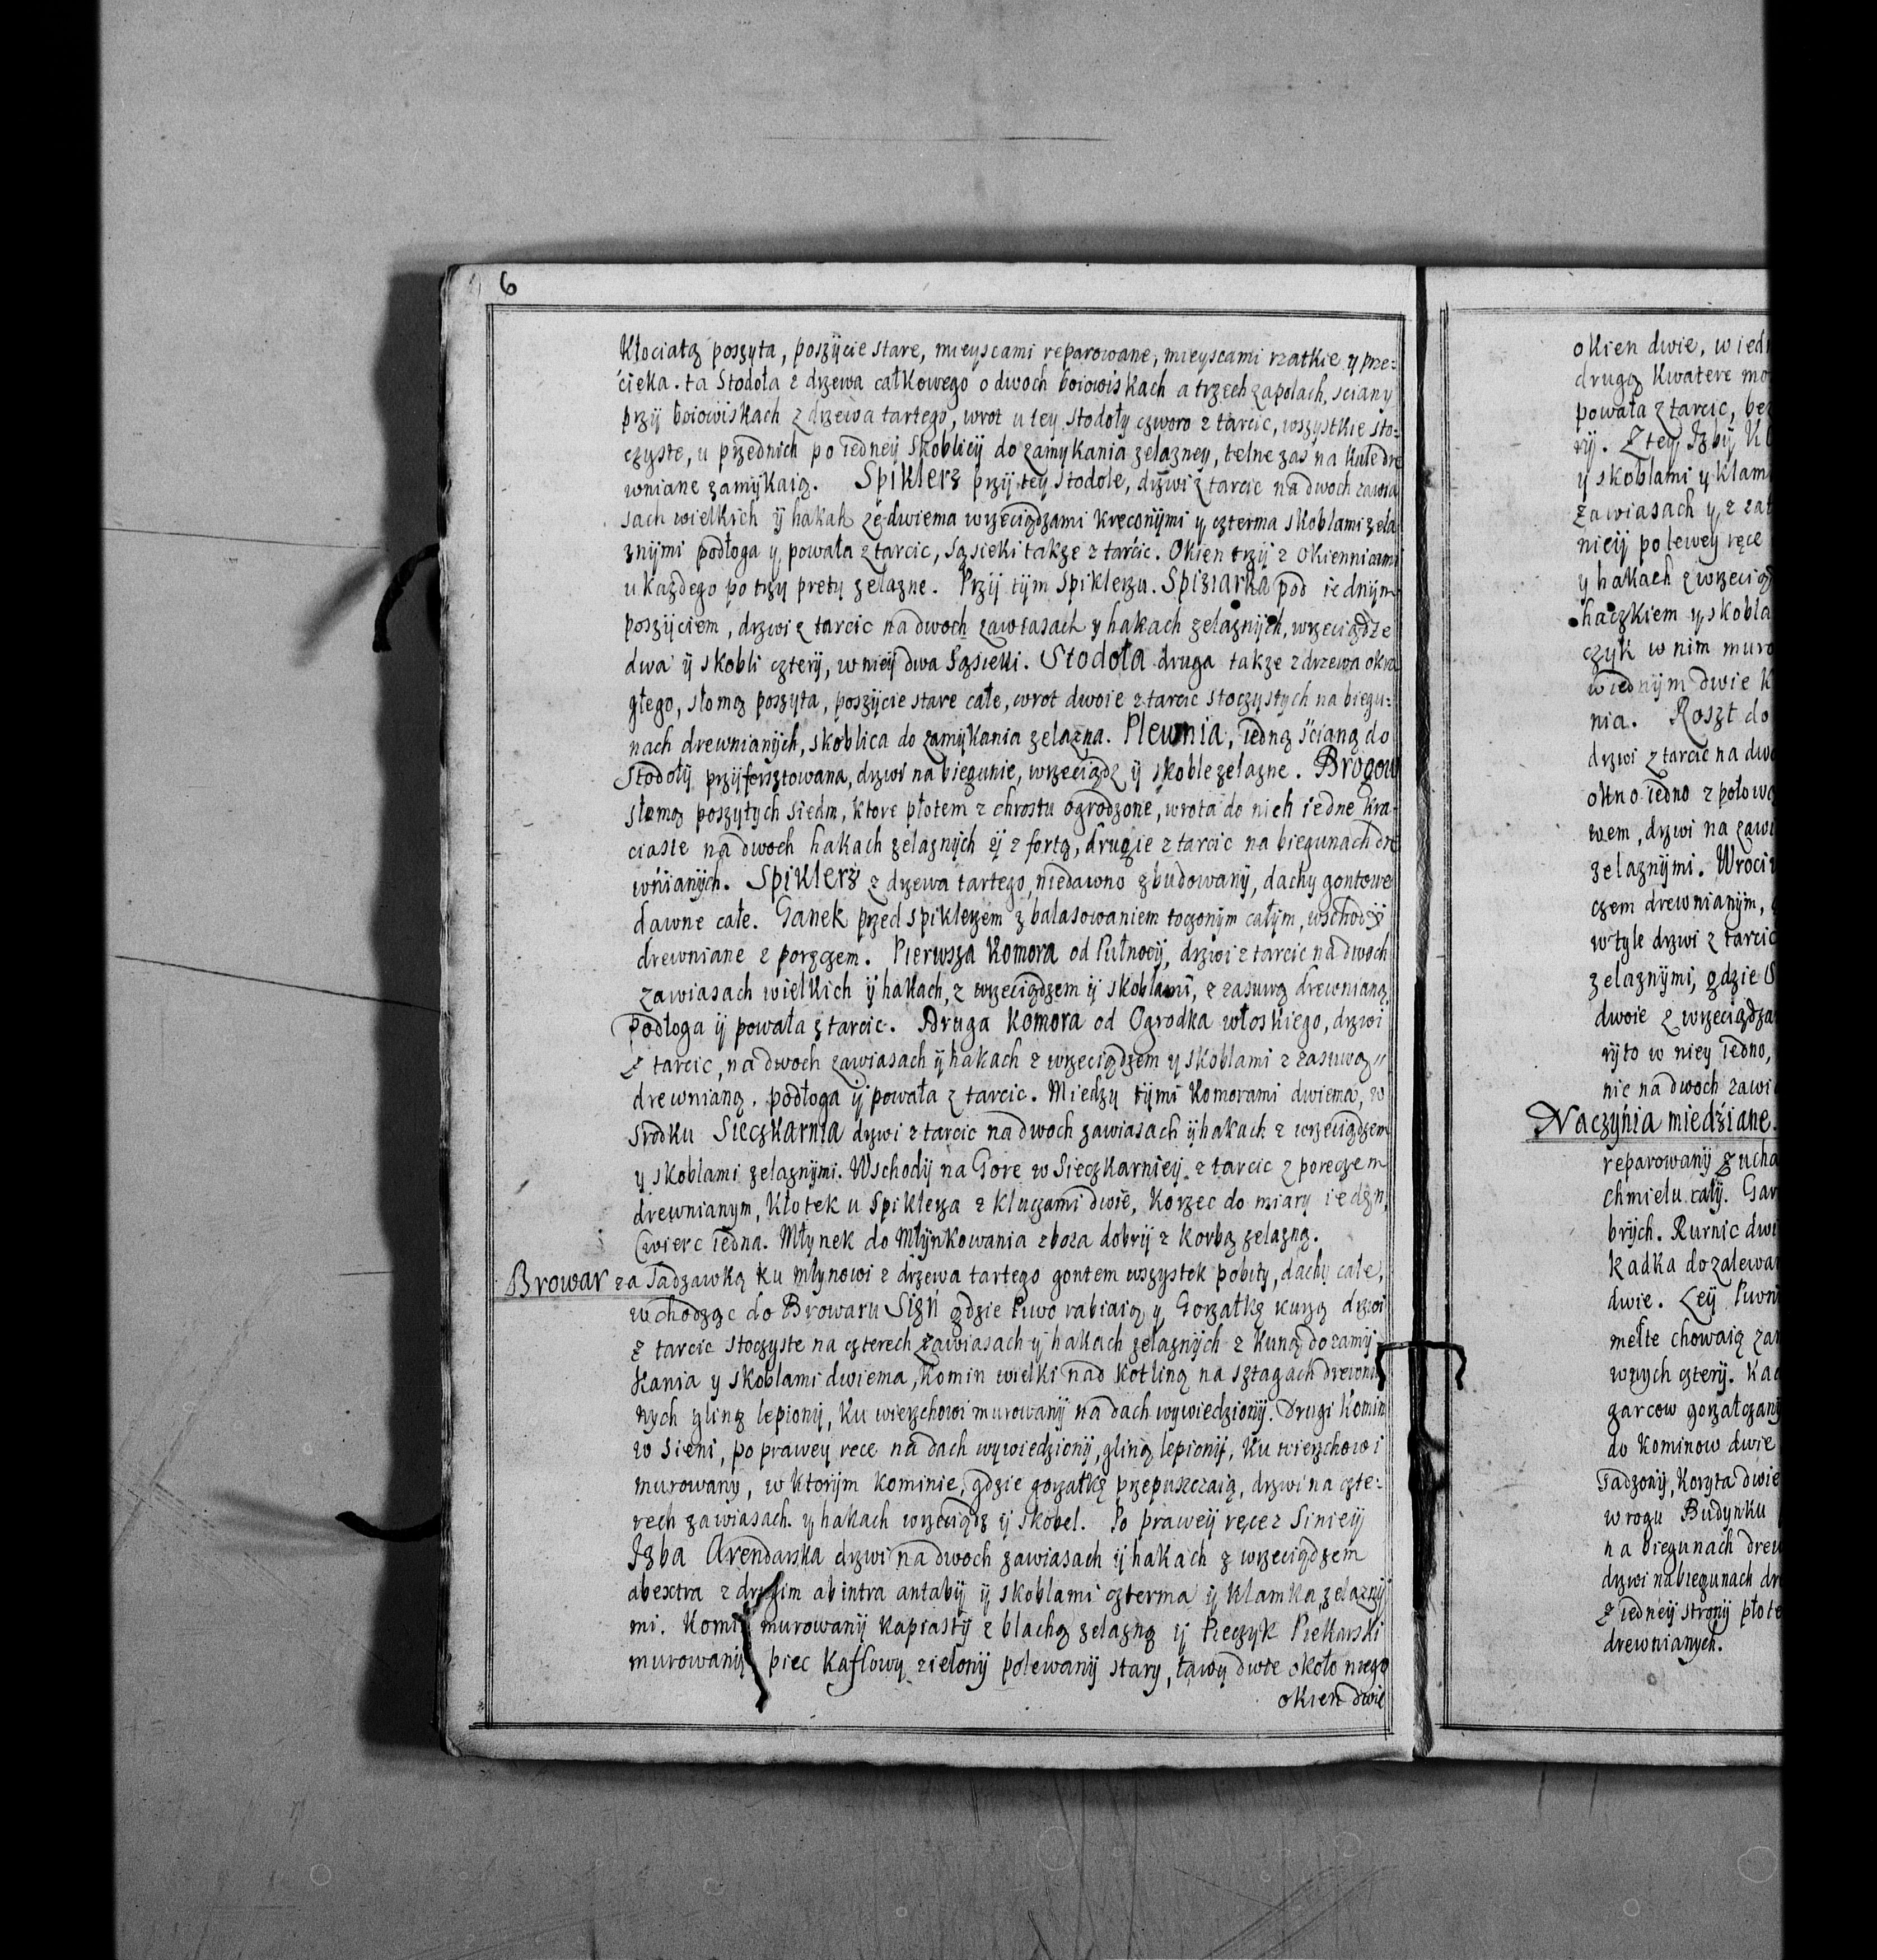 6
Kłociałą poszyta, poszÿcie stare, mieyscami reparowane, mieyscami rzatkie y prze=
cieka. ta Stodoła z drzewa całkowego o dwoch boiowiskach a trzech zapolach, sciany
przÿ boiowiskach z drzewa tartego, wrot u tey Stodoły czworo z tarcic, wszystkie sto=
czyste, u przednich po iedneÿ Skoblicÿ do zamykania zelazney, telne zas na kule dre
wniane zamÿkaią. Spiklerz przÿ teÿ Stodole, drzwi z tarcic na dwoch zawia
sach wielkich ÿ hakah ze dwiema wrzeciądzami kreconÿmi y czterma skoblami zela
znÿmi podłoga y powała z tarcic, sąsieki takze z tarcic. Okien trzÿ z okiennicami
u kazdego po trzy prety zelazne. Przÿ tÿm Spiklerzu. Spiziarka pod iednÿm
poszÿciem, drzwi z tarcic na dwoch zawiasach y hakach zelaznÿch, wrzeciądze
dwa ÿ skobli czterÿ, w nieÿ dwa Sąsieki. Stodoła druga takze z drzewa okra
głego, słomą poszyta, poszÿcie stare całe, wrot dwoie z tarcic stoczystych na biegu=
nach drewnianÿch, skoblica do zamÿkania zelazna. Plewnia, iedną ścianą do
Stodołÿ przÿforsztowana, drzwi na biegunie, wrzeciądz ÿ skoble zelazne. Brogow
słomą poszytych siedm, ktore płotem z chrostu ogrodzone, wrota do nich iedne kra
ciaste na dwoch hakach zelaznÿch ÿ z fortą, drugie z tarcic na biegunach dre
wnianÿch. Spiklerz z drzewa tartego, niedawno zbudowanÿ, dachy gontowe
dawne całe. Ganek przed spiklerzem z balasowaniem toczonÿm całÿm, wschodÿ
drewniane z poręczem. Pierwsza Komora od Pułnocÿ, drzwi z tarcic na dwoch
zawiasach wielkich ÿ hakach, z wrzeciądzem ÿ skoblami, z zasuwą drewnianą,
podłoga ÿ powała z tarcic. Druga Komora od Ogrodka włoskiego, drzwi
z tarcic, na dwoch zawiasach ÿ hakach z wrzeciądzem y skoblami z zasuwą
drewnianą, podłoga ÿ powała z tarcic. Miedzy tÿmi Komorami dwiema, w
srodku Sieczkarnia drzwi z tarcic na dwoch zawiasach ÿ hakach z wrzeciądzem
y skoblami zelaznÿmi. Wschodÿ na Gore w Sieczkarnieÿ z tarcic z poreczem
drewnianym, Kłotek u Spiklerza z kluczami dwie, Korzec do miary ieden,
Cwierc iedna. Młynek do Młÿnkowania zboza dobrÿ z korbą zelazną.
Browar za Sadzawką ku Młynowi z drzewa tartego gontem wszystek pobity, dachy całe,
wchodząc do Browaru Sień gdzie Piwo rabiaią y Gorzałkę kurzą drzwi
z tarcic stoczyste na czterech zawiasach ÿ hakach zelaznÿch z kuną do zamÿ=
kania y skoblami dwiema, Komin wielki nad kotliną na sztagach drewnia
nych gliną lepionÿ, ku wierzchowi murowanÿ na dach wywiedzionÿ. Drugi Komin
w Sieni, po prawey rece na dach wywiedzionÿ, gliną lepionÿ, ku wierzchowi
murowany, w ktorÿm kominie, gdzie gorzałkę przepuszczaią, drzwi na czte=
rech zawiasach y hakach wrzeciądz ÿ skobel. Po praweÿ ręce z Sinieÿ
Izba Arendarska drzwi na dwoch zawiasach ÿ hakach z wrzeciądzem
abextra z drugim abintra antabÿ ÿ skoblami czterma ÿ klamką zelaznÿ
mi. Komin murowanÿ kapiastÿ z blachą zelazną ÿ Pieczyk Piekarski
murowanÿ piec kaflowy zielonÿ polewanÿ stary, ławy dwie około niego
okien dwie
okien dwie, w iedn
drugą kwatere mo
powała z tarcic, bez
rÿ. Z tey Izbÿ
y skoblami y klam
zawiasach y z zas
nieÿ po lewey ręce
y hakach z wrzeciąd
haczkiem y skobla
czyk w nim muro
w iednÿm dwie
nia. Roszt do
drzwi z tarcic na dwo
okno iedno z połowo
wem, drzwi na zawi
zelaznÿmi. Wroci
czem drewnianym,
w tyle drzwi z tarcic
zelaznÿmi, gdzie
dwoie z wrzeciądza
rÿto w niey iedno,
nic na dwoch zawi
Naczÿnia miedziane.
reparowanÿ z ucha
chmielu całÿ. Gar
brÿch. Rurnic dwi
kadka do zalewan
dwie. Leÿ Piwn
mełte chowaią
wnych czterÿ. Kad
garcow gorzałczanÿ
do kominow dwie
sadzonÿ, Koryta dwie
w rogu Budÿnku
na biegunach drew
drzwi na biegunach dr
z iedneÿ stronÿ płote
drewnianych.